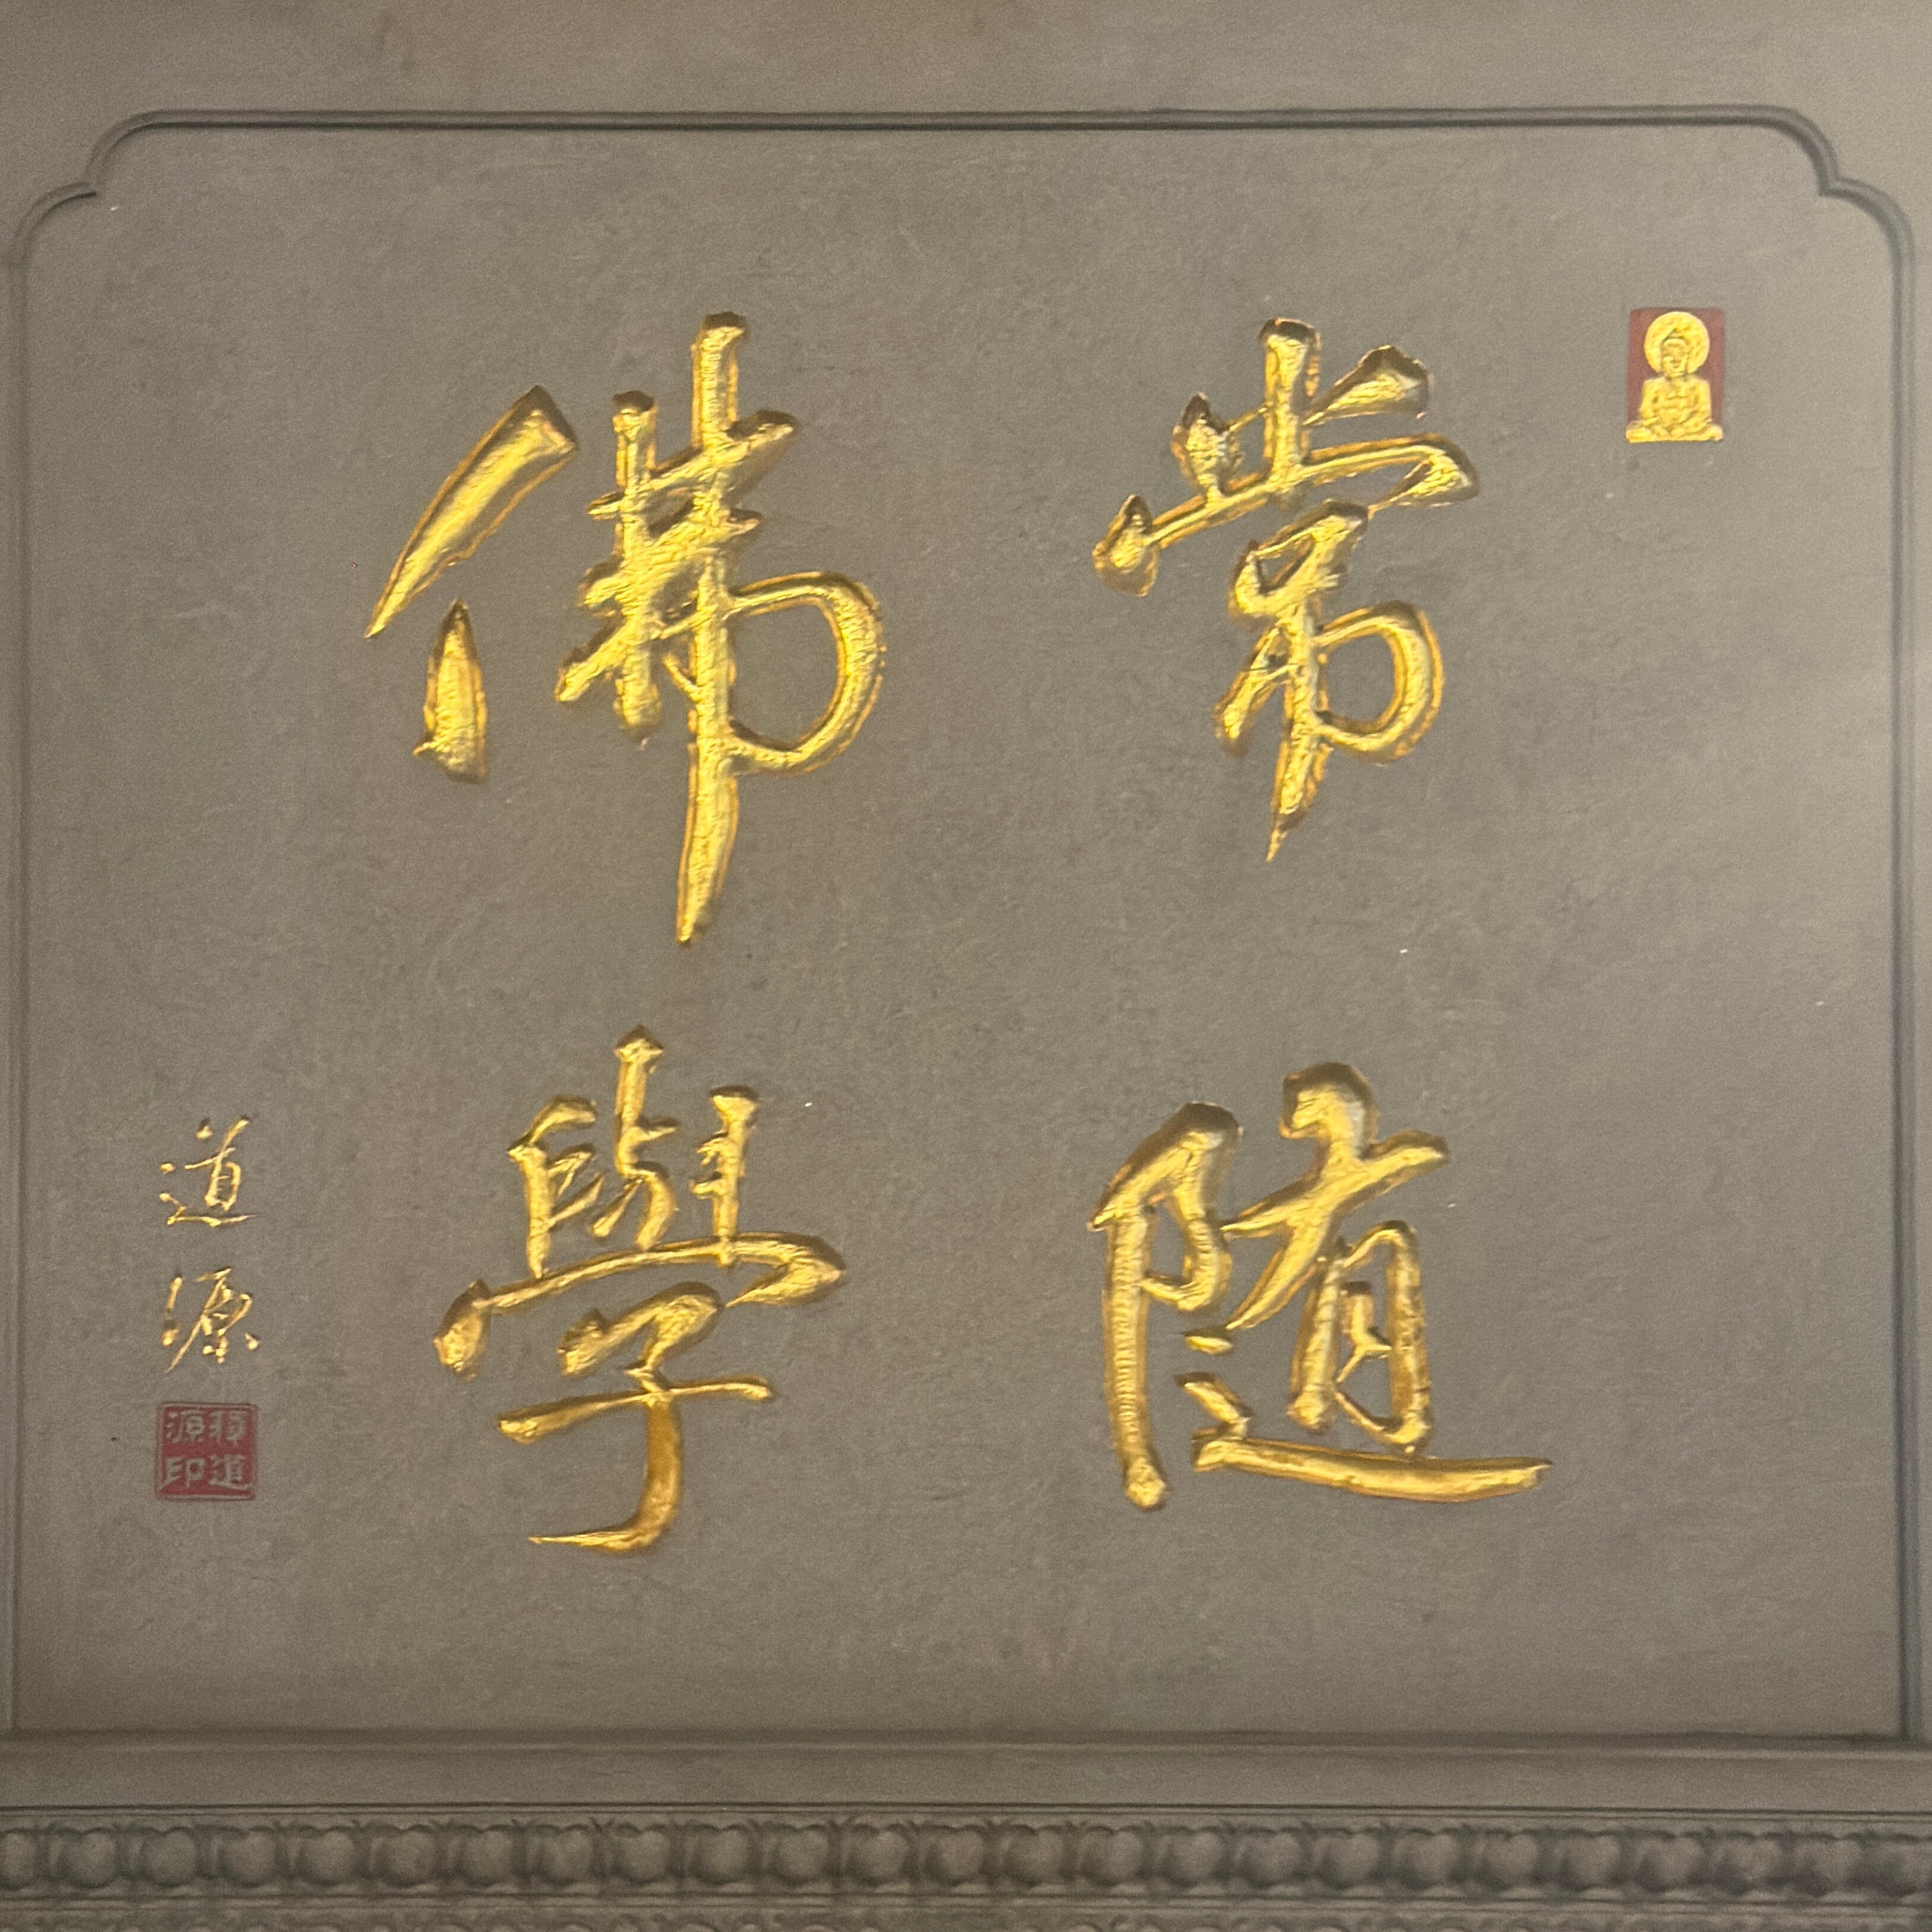 常随
佛學
道源
釋道源印